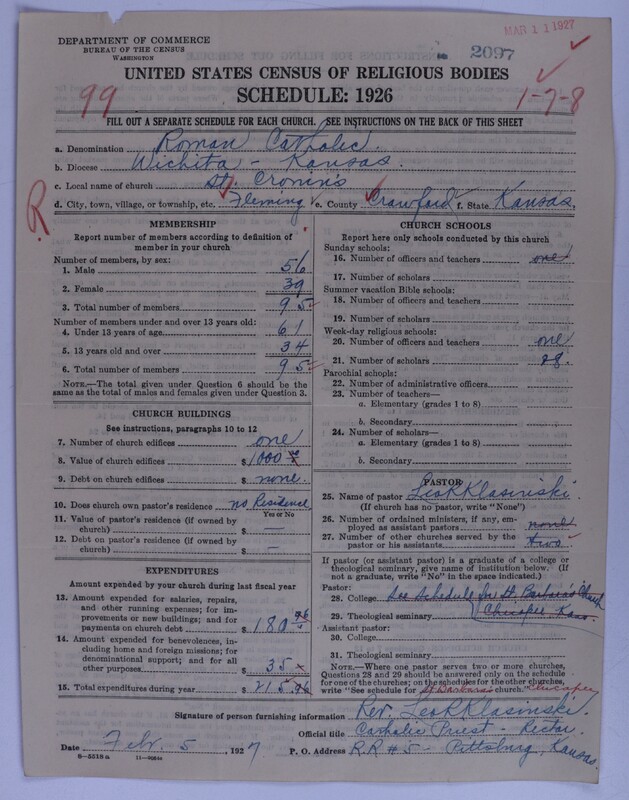 DEPARTMENT OF COMMERCE
BUREAU OF THE CENSUS
WASHINGTON
MAR 11 1927
2097
UNITED STATES CENSUS OF RELIGIOUS BODIES
SCHEDULE: 1926
99
1-7-8
FILL OUT A SEPARATE SCHEDULE FOR EACH CHURCH. SEE INSTRUCTIONS ON THE BACK OF THIS SHEET
a. Denomination Roman Catholic.
b. Diocese Wichita - Kansas.
c. Local name of church St. Cronin's
d. City, town, village, or township, etc. Fleming e. County Crawford f. State Kansas,
R
MEMBERSHIP
Report number of members according to definition of
member in your church
Number of members, by sex:
1. Male 56
2. Female 39
3. Total number of members 95
Number of members under and over 13 years old:
4. Under 13 years of age 61
5. 13 years old and over 34
6. Total number of members 95
NOTE.—The total given under Question 6 should be
the same as the total of males and females given under Question 3.
CHURCH BUILDINGS
See instructions, paragraphs 10 to 12
7. Number of church edifices one
8. Value of church edifices $1000
9. Debt on church edifices $ none.
10. Does church own pastor's residence no Residence
Yes or No
11. Value of pastor's residence (if owned by
church) $ —
12. Debt on pastor's residence (if owned by
church) $ —
EXPENDITURES
Amount expended by your church during last fiscal year
13. Amount expended for salaries, repairs,
and other running expenses; for im-
provements or new buildings; and for
payments on church debt $ 180
14. Amount expended for benevolences, in-
cluding home and foreign missions; for
denominational support; and for all
other purposes $ 35
15. Total expenditures during year $ 215
CHURCH SCHOOLS
Report here only schools conducted by this church
Sunday schools:
16. Number of officers and teachers one
17. Number of scholars
Summer vacation Bible schools:
18. Number of officers and teachers
19. Number of scholars
Week-day religious schools:
20. Number of officers and teachers one
21. Number of scholars 28.
Parochial schools:
22. Number of administrative officers
23. Number of teachers—
a. Elementary (grades 1 to 8)
b. Secondary
24. Number of scholars—
a. Elementary (grades 1 to 8)
b. Secondary
PASTOR
25. Name of pastor Leo R Klasinski
(If church has no pastor, write "None")
26. Number of ordained ministers, if any, em-
ployed as assistant pastors none
27. Number of other churches served by the
pastor or his assistants two
If pastor (or assistant pastor) is a graduate of a college or
theological seminary, give name of institution below. (If
not a graduate, write "No" in the space indicated.)
Pastor:
28. College See Schedule for St. Barbara's Church
29. Theological seminary Chicopee, Kans.
Assistant pastor:
30. College
31. Theological seminary
NOTE.—Where one pastor serves two or more churches,
Questions 28 and 29 should be answered only on the schedule
for one of the churches; on the schedules for the other churches,
write "See schedule for St Barbara's church." Chicopee
Signature of person furnishing information Rev. Leo R Klasinski.
Official title Catholic Priest - Rector.
Date Feb. 5, 1927 P. O. Address R.R #5 - Pittsburg, Kansas.
8-5518a